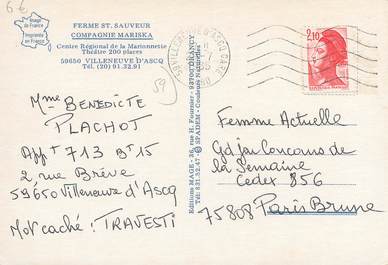 6 €
Image
de France
Imprimée
en France
FERME ST. SAUVEUR
COMPAGNIE MARISKA
Centre Régional de la Marionnette
Théâtre 200 places
59650 VILLENEUVE D'ASCQ
Tél. (20) 91.32.91
59
Mme BENEDICTE
PLACHOT
App t 713 Bt 15
2 rue Brève
59650 Villeneuve d'Ascq
Mot caché : TRAVESTI
Editions MAGE - 36, rue H. Fournier - 93700 DRANCY
Tél. 831.52.47 - © SPADEM - Couleurs Naturelles
2,10
Femme Actuelle
Gd jeu Concours de
la Semaine
Cedex 856
75808 Paris Brune